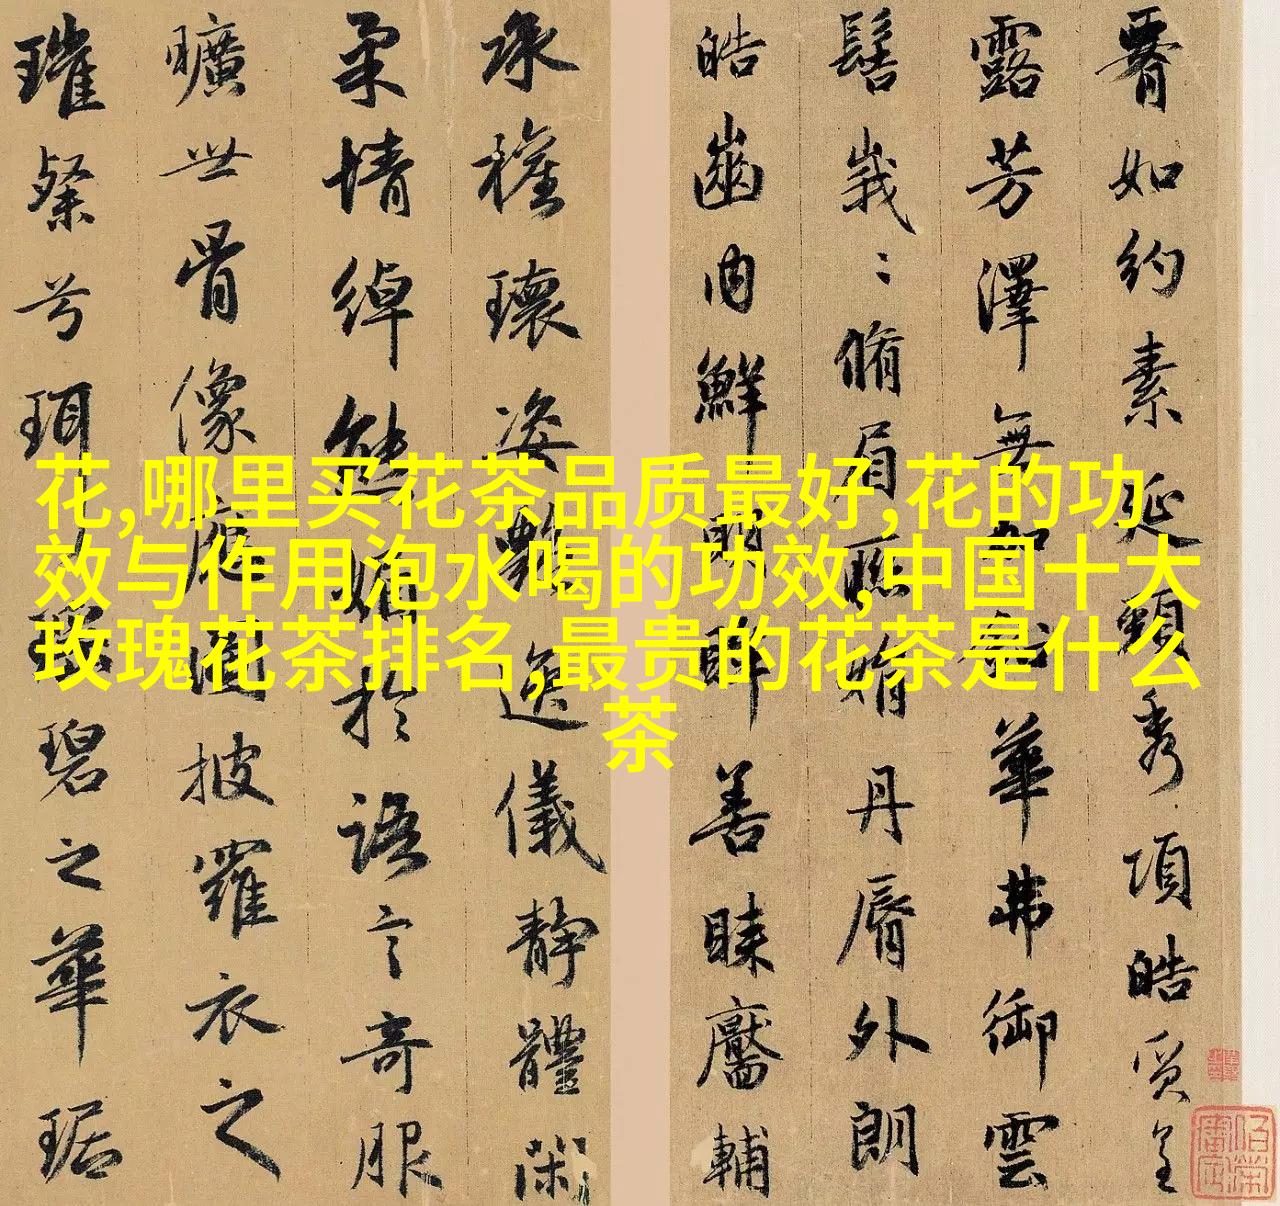 花,哪里买花茶品质最好,花的功
效与作用泡水喝的功效,中国十大
玫瑰花茶排名,最贵的花茶是什么
茶
腰如約素延頸秀項皓質呈
露芳澤無加鉛華弗御雲
髻峩〻脩眉聮娟丹脣外朗
皓齒内鮮明眸善睞靨輔
承權瓌姿艷逸儀靜體閑
柔情綽態媚於語言奇服
曠世骨像應圖披羅衣之
璀粲兮珥瑤碧之華琚